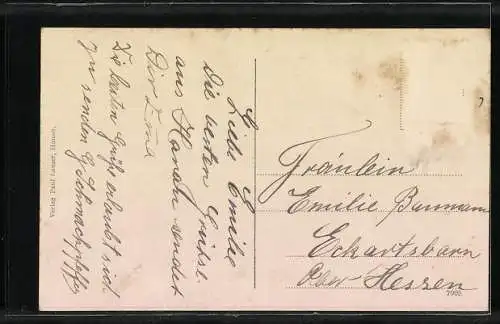 Liebe Emilie
Die besten Grüsse
aus Hanau sendet
Dir Tina
Die besten Grüße erlaubt sich
zu senden G. Schmachpfeffer
Verlag Paul Lanser, Hanau.
Fräulein
Emilie Baumann
Eckartsbarn
Ober Hessen